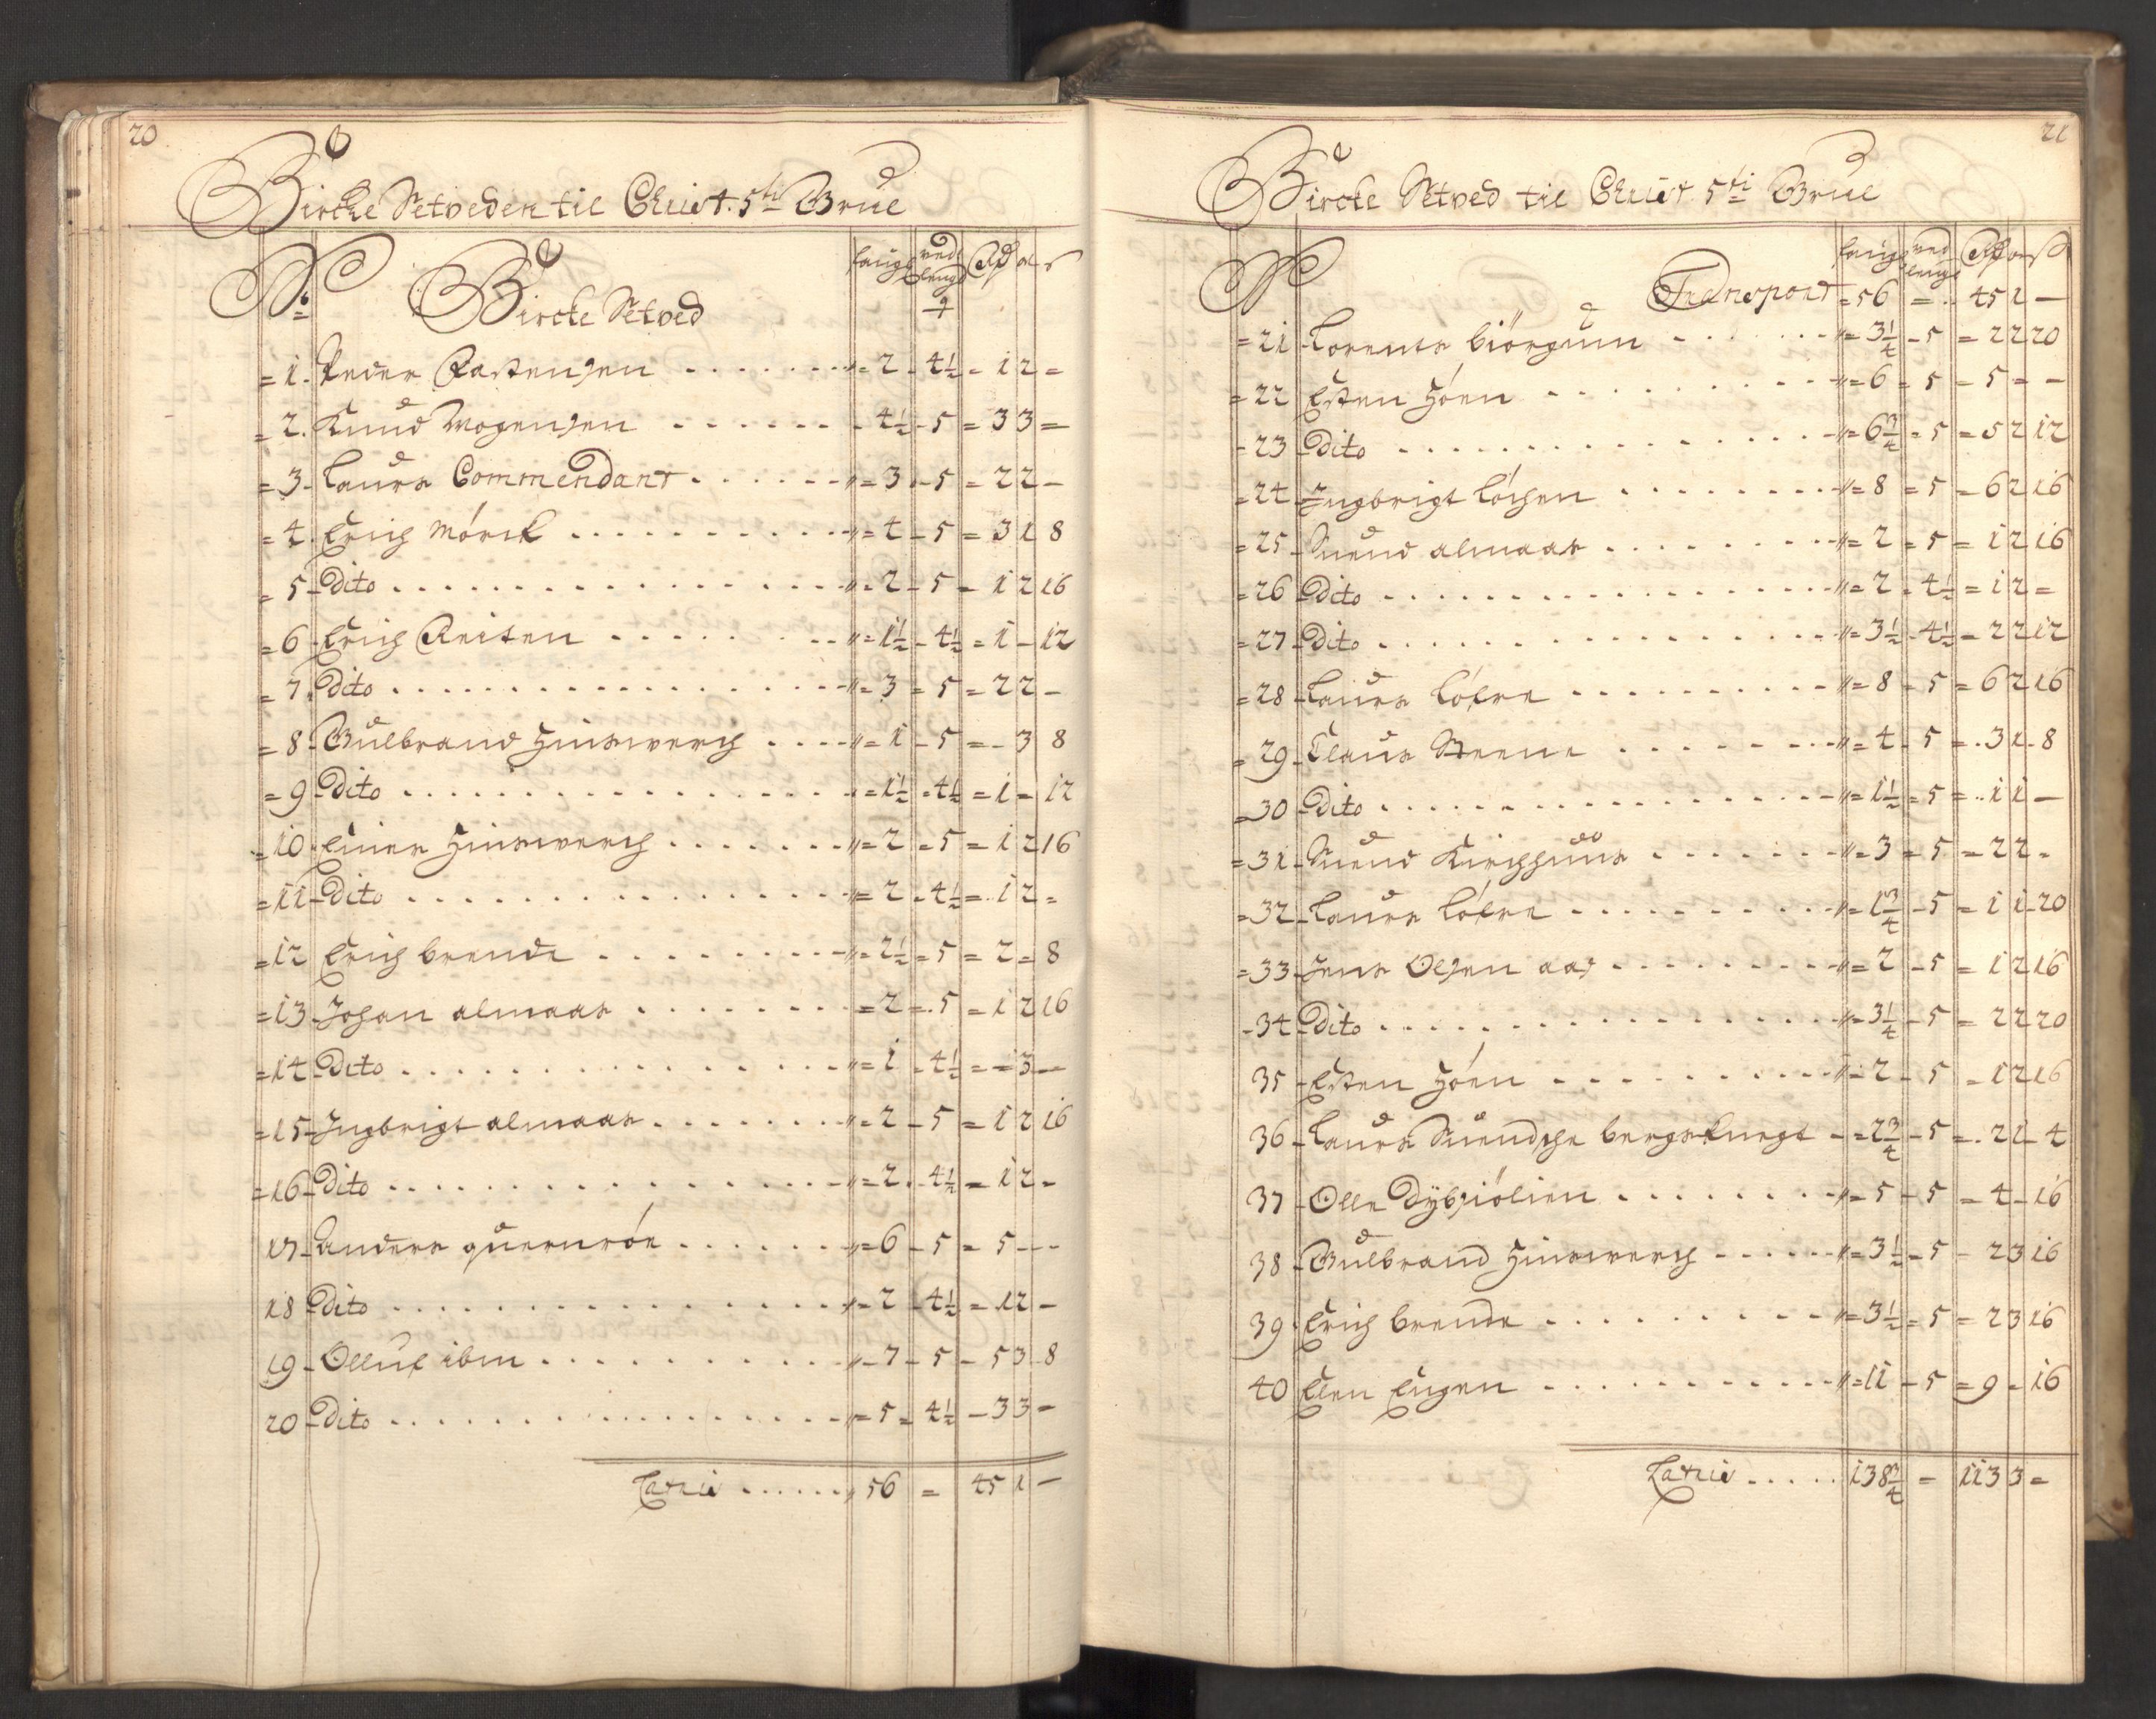 20
Bircke Setveden til Christ. 5ti Grue
No Bircke Setved faugn ved lengd Rd or s
4
= 1. Peder Rastensen . . . . . . . = 2 - 4½ - 1 2 =
= 2. Knud Mogensen . . . . . . - 4½ - 5 = 3 3 =
= 3 - Laurs Commendant . . . . . . = 3 - 5 = 2 2 -
= 4. Erich Mörck . . . . . . . . . . = 4 - 5 = 3 1 8
= 5 - Dito . . . . . . . . . . = 2 - 5 = 1 2 16
= 6 - Erich Reiten . . . . . . . = 1½ - 4½ = 1 - 12
= 7. Dito . . . . . . . . . . = 3 = 5 = 2 2 -
= 8 - Gulbrand Hinsverch . . . . = 1 - 5 = - 3 8
= 9 - Dito . . . . . . . . . . = 1½ = 4½ = 1 - 12
= 10 - Einer Hinsverch . . . . . . . = 2 = 5 = 1 2 16
= 11 - Dito . . . . . . . . . . = 2 - 4½ = 1 2 =
= 12 Erich brende . . . . . . . . = 2½ = 5 = 2 = 8
= 13 - Johan almaas . . . . . . . . = 2 = 5 = 1 2 16
= 14 - Dito . . . . . . . . . . = 1 - 4½ = - 3 -
= 15 - Ingbrigt almaas . . . . . . . = 2 - 5 = 1 2 16
= 16 - Dito . . . . . . . . . . = 2 - 4½ = 1 2 -
17 - Anders quernröe . . . . . . = 6 - 5 = 5 - -
18 Dito . . . . . . . . . . = 2 - 4½ = 1 2 -
19 - Olluf ibm . . . . . . . . . . = 7 - 5 - 5 3 8
20 - Dito . . . . . . . . . . = 5 = 4½ - 3 3 -
Latrie . . . . . . 56 = 45 1 -
21
Bircke Setved til Christ 5ti Grue
No faugn ved lengd Rd or s
Transport = 56 = . 45 1 -
= 21 - Lorents biörgum . . . . . . = 3¼ - 5 = 2 2 20
= 22 Esten Höen . . . . . . . . . . = 6 = 5 - 5 = -
- 23 Dito . . . . . . . . . . = 6¾ = 5 = 5 2 12
= 24 - Ingbrigt Löchen . . . . . . . . = 8 = 5 = 6 2 16
= 25 - Suend almaas . . . . . . . . . = 2 = 5 = 1 2 16
= 26 - Dito . . . . . . . . . . = 2 - 4½ = 1 2 =
= 27 - Dito . . . . . . . . . . = 3½ - 4½ = 2 2 12
= 28 - Laurs Löfre . . . . . . . . . . = 8 = 5 = 6 2 16
= 29 - Claus Steene . . . . . . . . . = 4 - 5 = . 3 1 - 8
= 30 - Dito . . . . . . . . . . = 1½ = 5 = . . 1 1 -
= 31 - Suend Kirchhuus . . . . . . . = 3 = 5 = 2 2 -
= 32 - Laurs Löfre . . . . . . . . . . = 1¾ - 5 = 1 1 - 20
= 33 - Jens Olsen aas . . . . . . . . = 2 - 5 = 1 2 16
- 34 - Dito . . . . . . . . . . = 3¼ - 5 = 2 2 20
35 - Esten Höen . . . . . . . . . . = 2 - 5 = 1 2 16
36 - Laurs Suendske bergsknegt - = 2¾ - 5 = . 2 1 - 4
37 - Olle Dybsiölien . . . . . . . . = 5 - 5 = 4 - 16
38 - Gulbrand Hinsverch . . . . . . = 3½ = 5 - 2 3 16
39 - Erich brende . . . . . . . . . . = 3½ = 5 = 2 3 16
40 Elen Eugen . . . . . . . . . . = 11 - 5 = 9 - 16
Latrie . . . . . 138¾ = 113 3 =